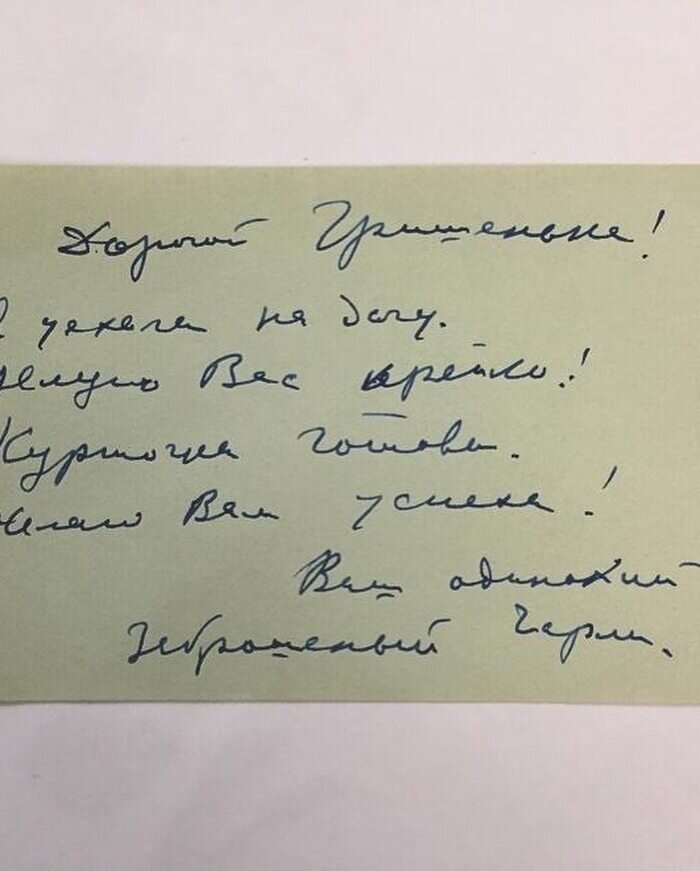 Дорогой Гришенька!
Я уехала на дачу.
Целую Вас крепко!
Курточка готова.
Желаю Вам успеха!
Ваш одинокий
Заброшенный Чарли.